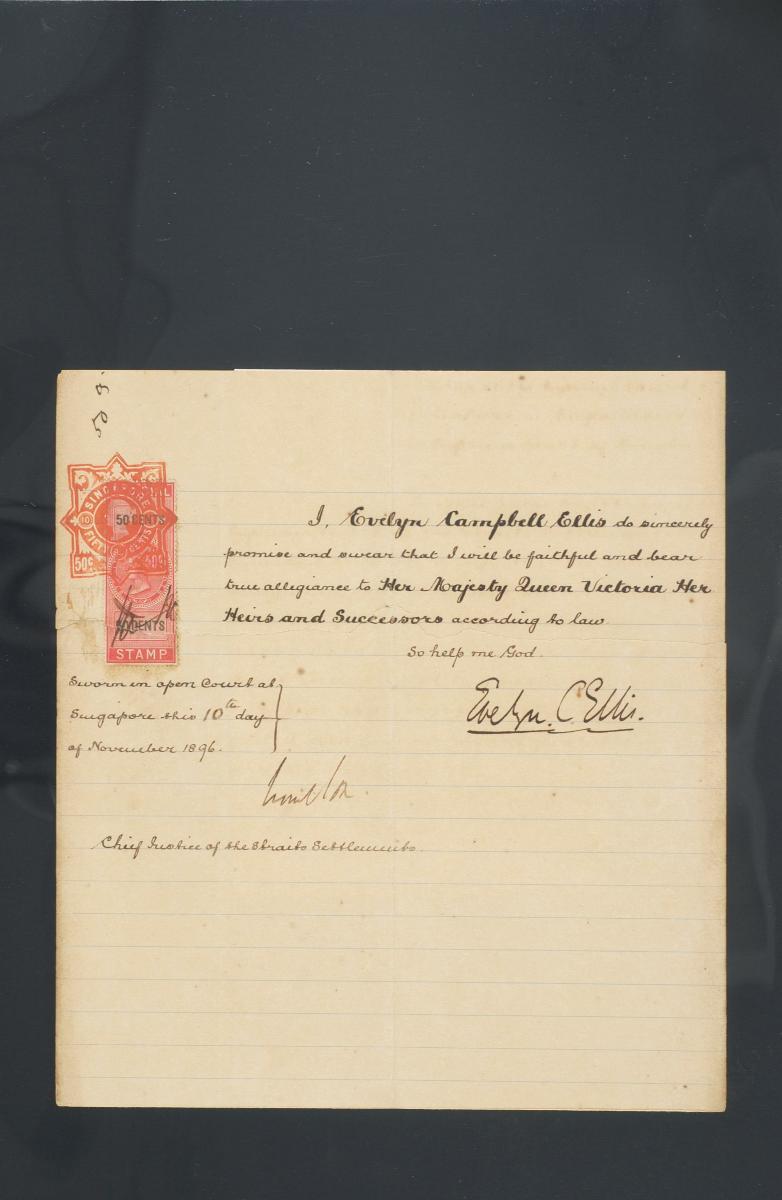 50
SINGAPORE
10
50 CENTS
FIFTY CENTS
50c
50c
50 CENTS
STAMP
I, Evelyn Campbell Ellis do sincerely
promise and swear that I will be faithful and bear
true allegiance to Her Majesty Queen Victoria Her
Heirs and Successors according to law
So help me God.
Sworn in open Court at
Singapore this 10th day
of November 1896.
Evelyn. C. Ellis.
Chief Justice of the Straits Settlements.